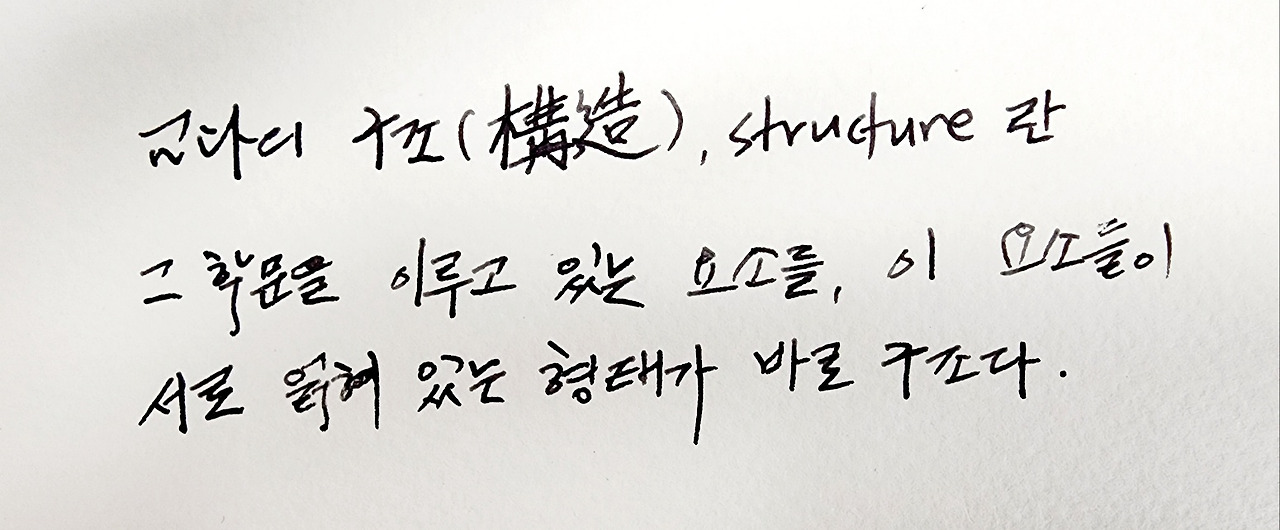 구조(構造), structure 란
그 학문을 이루고 있는 요소들, 이 요소들이
서로 얽혀 있는 형태가 바로 구조다.